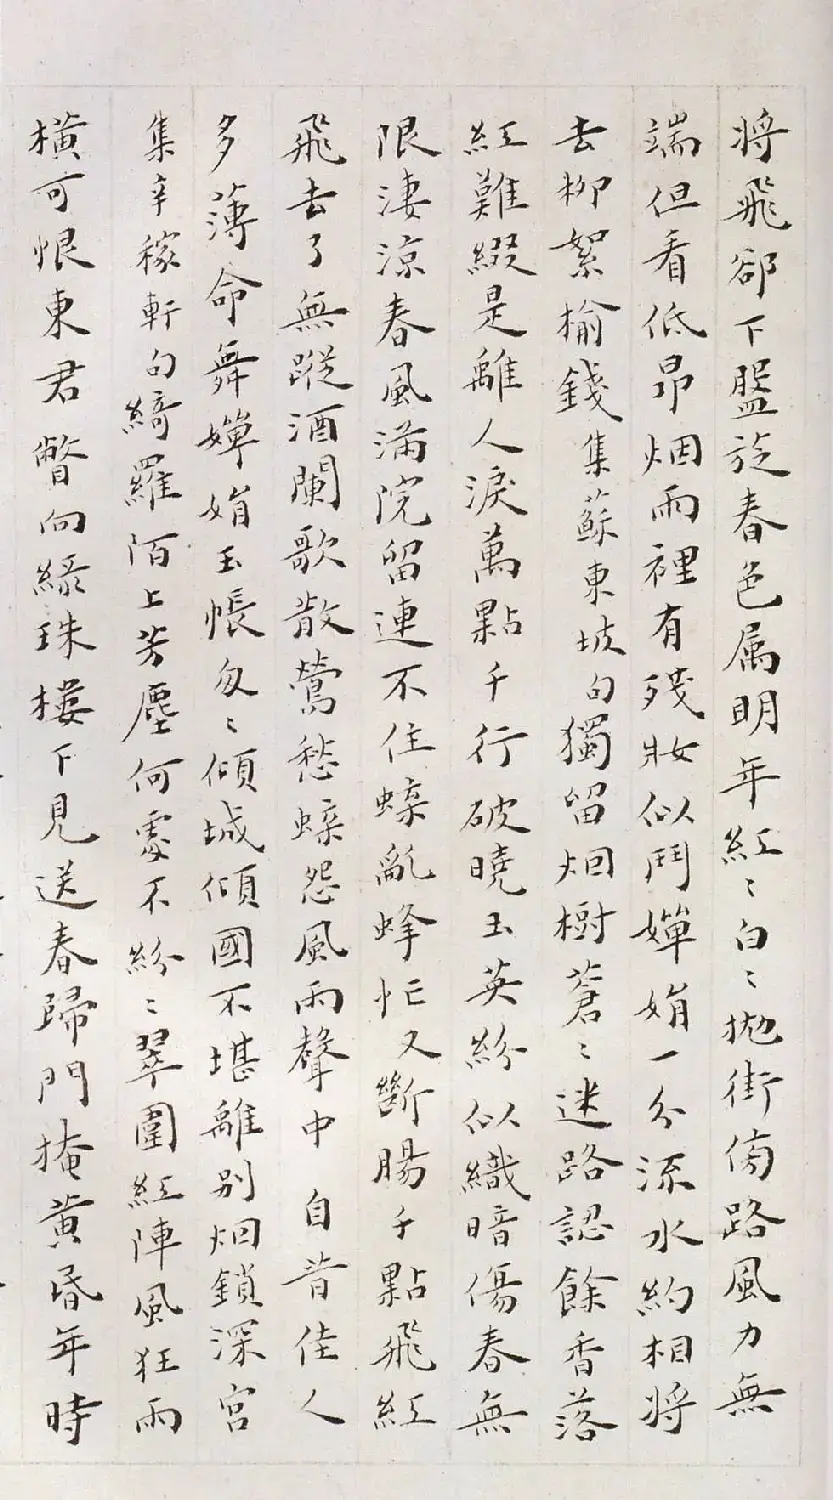 将飛卻下盤旋春色属明年紅〻白〻抛街傍路風力無
端但看低昂烟雨裡有殘妝似鬥嬋娟一分流水約相将
去柳絮榆錢集蘇東坡句獨留烟樹蒼〻迷路認餘香落
紅難綴是離人淚萬點千行破曉玉英紛似織暗傷春無
限淒涼春風滿院留連不住蜨亂蜂忙又斷腸千點飛紅
飛去了無蹤酒闌歌散鶯愁蜨怨風雨聲中自昔佳人
多薄命舞嬋娟玉帳匆〻傾城傾國不堪離別烟鎖深宮
集辛稼軒句綺羅陌上芳塵何處不紛〻翠圍紅陣風狂雨
橫可恨東君瞥向綠珠樓下見送春歸門掩黃昏年時